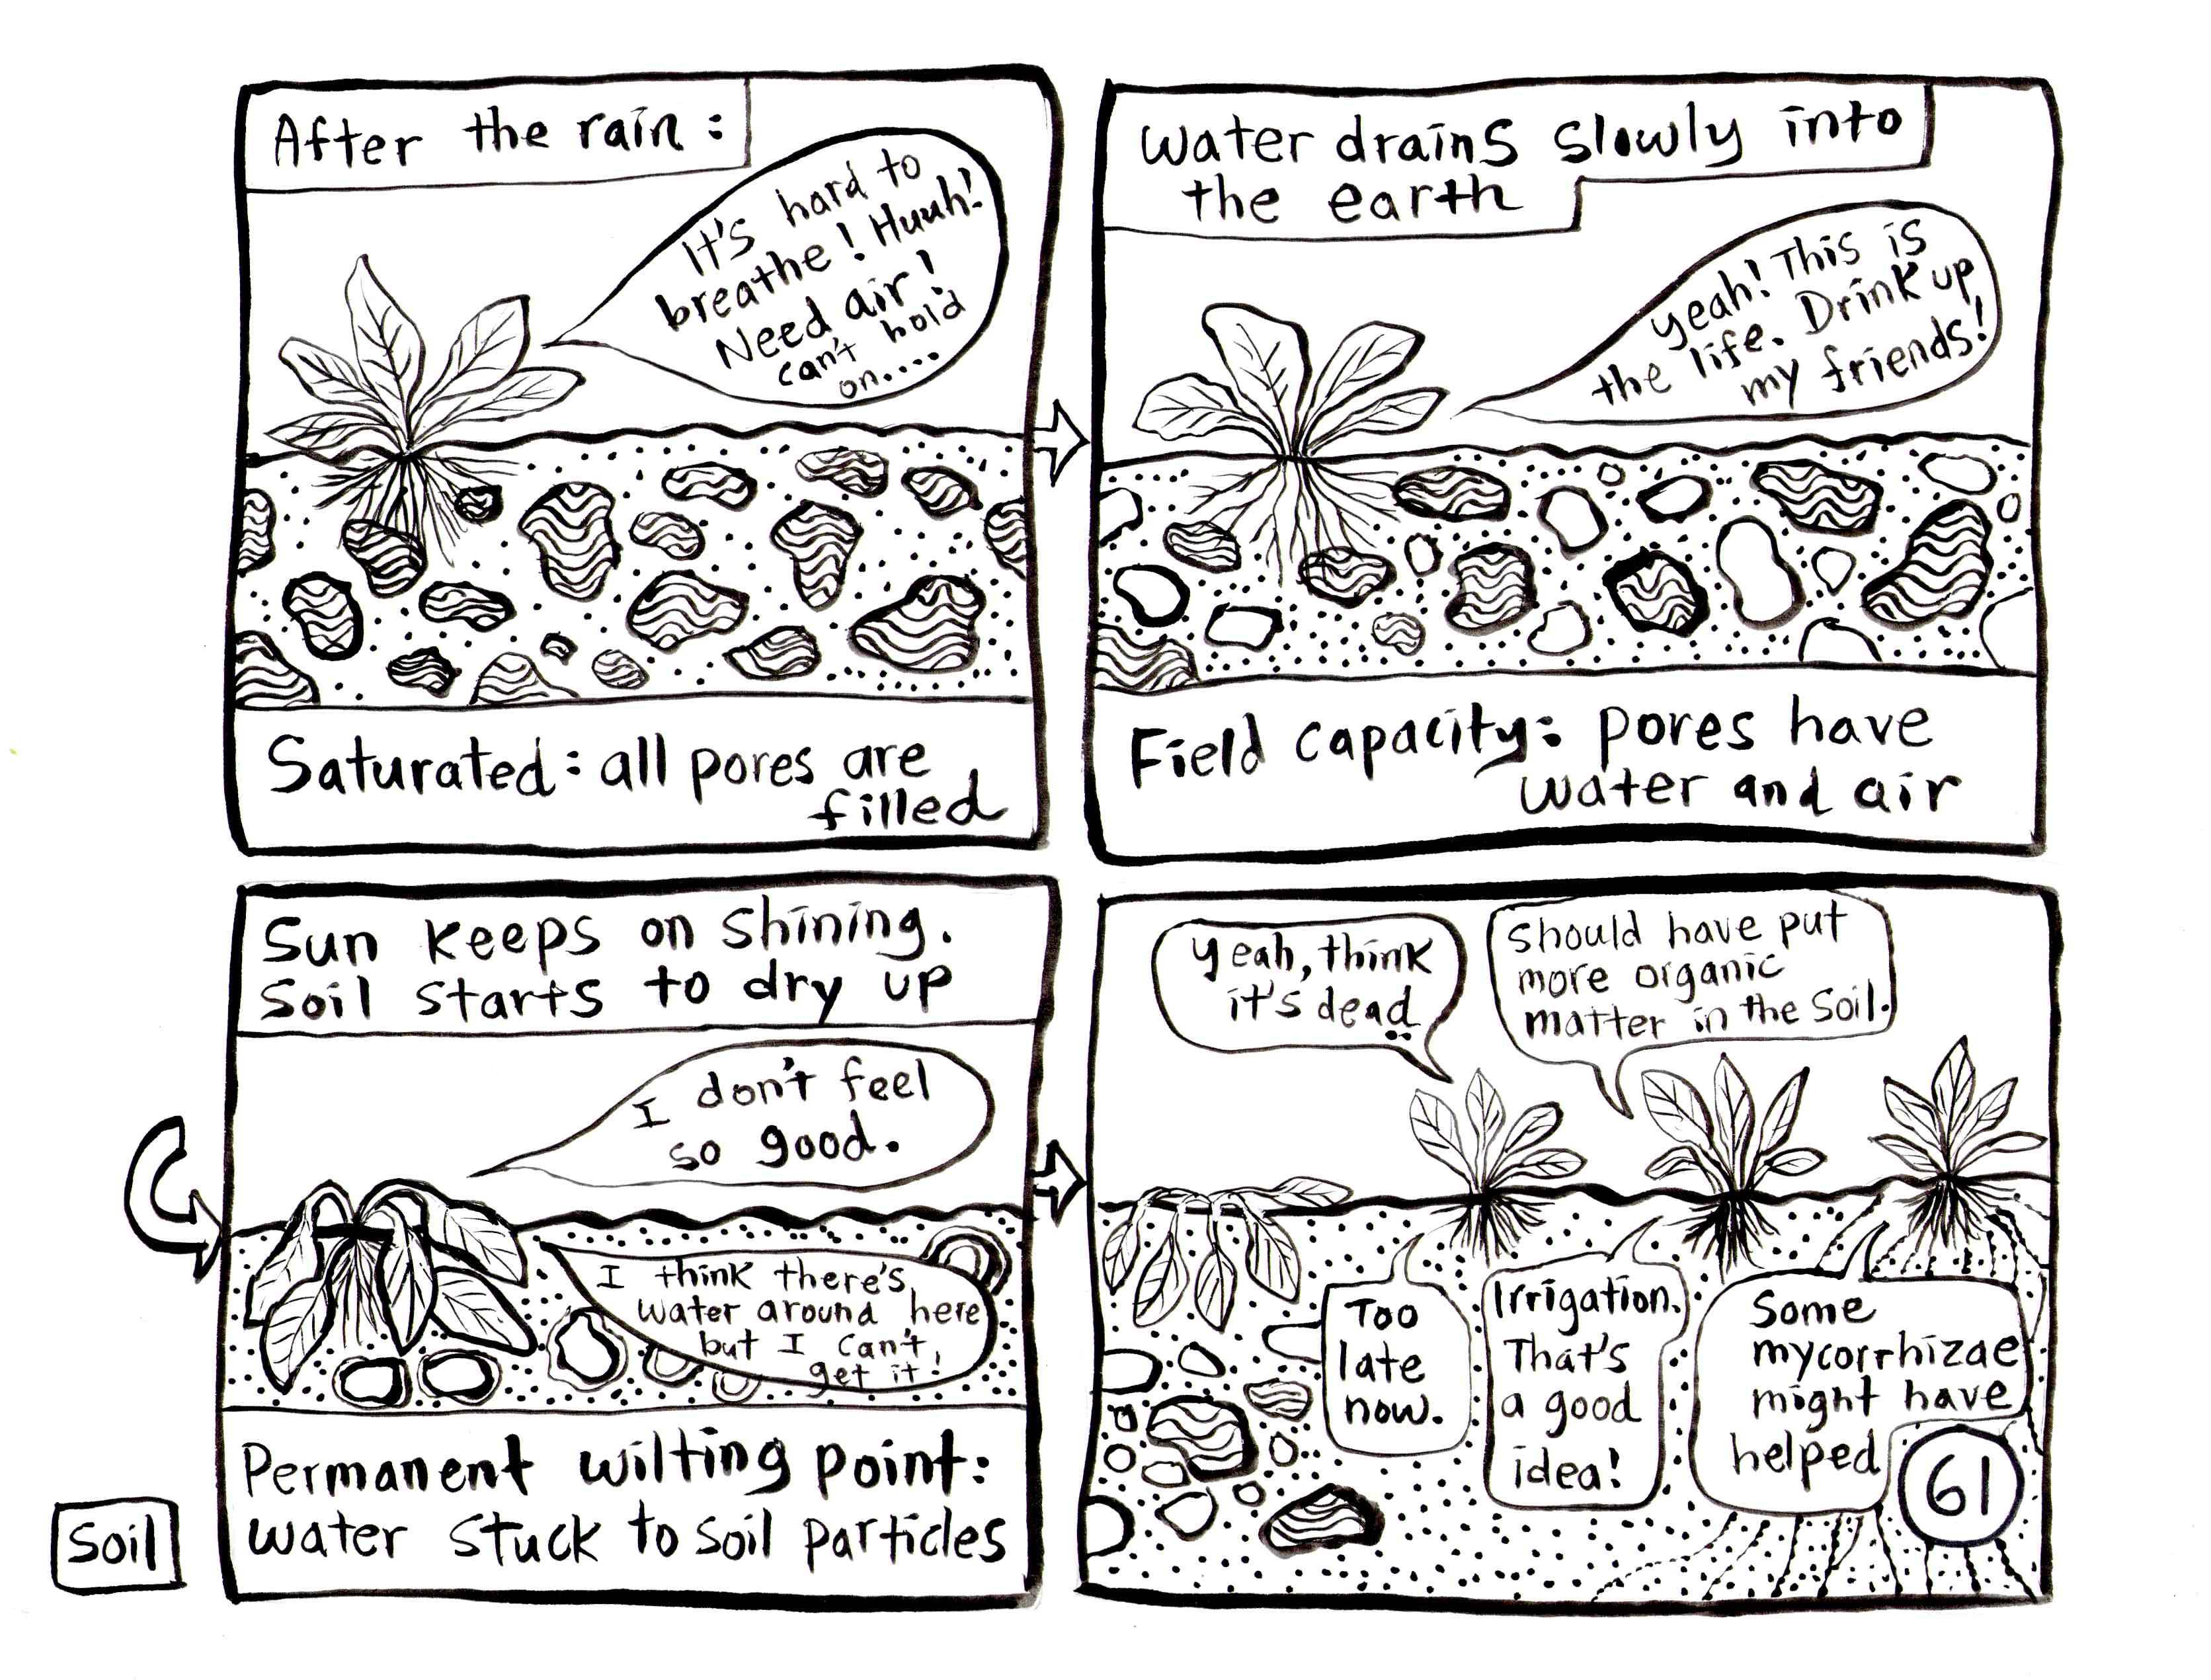 After the rain:
It's hard to
breathe! Huuh!
Need air!
can't hold
on....
Saturated: all pores are
filled
Water drains slowly into
the earth
yeah! This is
the life. Drink up
my friends!
Field capacity: pores have
water and air
Sun keeps on shining.
Soil starts to dry up
I don't feel
so good.
I think there's
water around here
but I can't
get it!
Permanent wilting point:
water stuck to soil particles
Soil
yeah, think
it's dead
Should have put
more organic
matter in the soil.
Too
late
now.
Irrigation.
That's
a good
idea!
Some
mycorrhizae
might have
helped
61